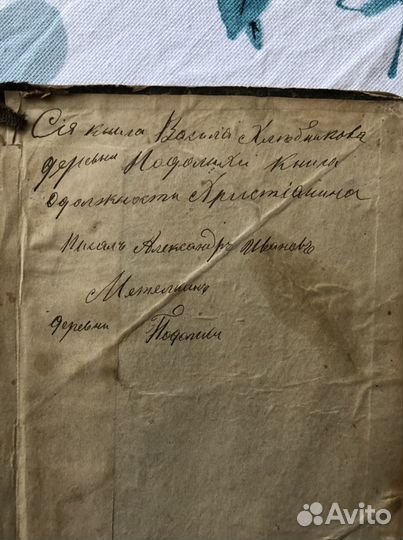 Сія книга Василія Хлѣбникова
деревни Подолихи книга
одолжности Христіанина
Писалъ Александръ Ивановъ
деревни
Avito